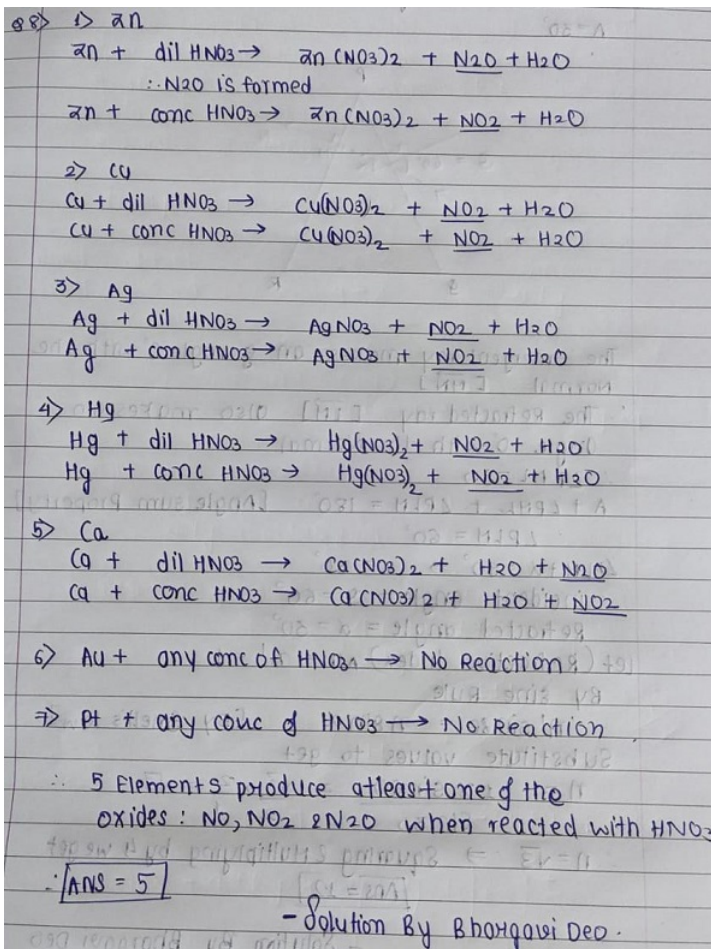 Q8> 1> Zn
Zn + dil HNO3 → Zn(NO3)2 + N2O + H2O
∴ N2O is formed
Zn + conc HNO3 → Zn(NO3)2 + NO2 + H2O
2> Cu
Cu + dil HNO3 → Cu(NO3)2 + NO2 + H2O
Cu + conc HNO3 → Cu(NO3)2 + NO2 + H2O
3> Ag
Ag + dil HNO3 → AgNO3 + NO2 + H2O
Ag + conc HNO3 → AgNO3 + NO2 + H2O
4> Hg
Hg + dil HNO3 → Hg(NO3)2 + NO2 + H2O
Hg + conc HNO3 → Hg(NO3)2 + NO2 + H2O
5> Ca
Ca + dil HNO3 → Ca(NO3)2 + H2O + N2O
Ca + conc HNO3 → Ca(NO3)2 + H2O + NO2
6> Au + any conc of HNO3 → No Reaction
7> Pt + any conc of HNO3 → No Reaction
∴ 5 Elements produce atleast one of the
oxides : NO, NO2 & N2O when reacted with HNO3
∴ ANS = 5
- Solution By Bhargavi Deo.